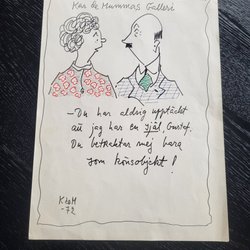 Kar de Mummas Galleri
– Du har aldrig upptäckt
att jag har en själ, Gustaf.
Du betraktar mej bara
som könsobjekt!
KdeM
-72